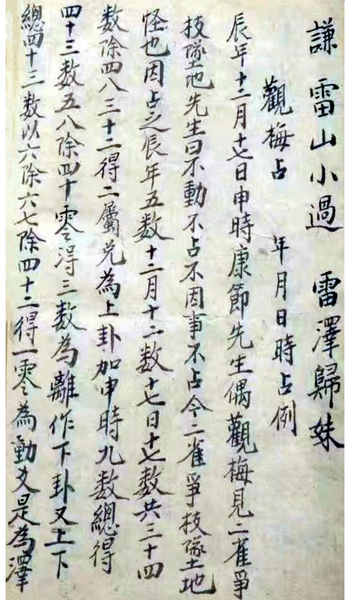 謙 雷山小過 雷澤歸妹
觀梅占 年月日時占例
辰年十二月十七日申時康節先生偶觀梅見二雀爭
枝墜地先生曰不動不占不因事不占今二雀爭枝墜土地
怪也因占之辰年五數十二月十二數十七日十七數共三十四
數除四八三十二得二屬兌為上卦加申時九數總得
四十三數五八除四十零得三數為離作下卦又上下
總四十三數以六除六七除四十二得一零為動爻是為澤